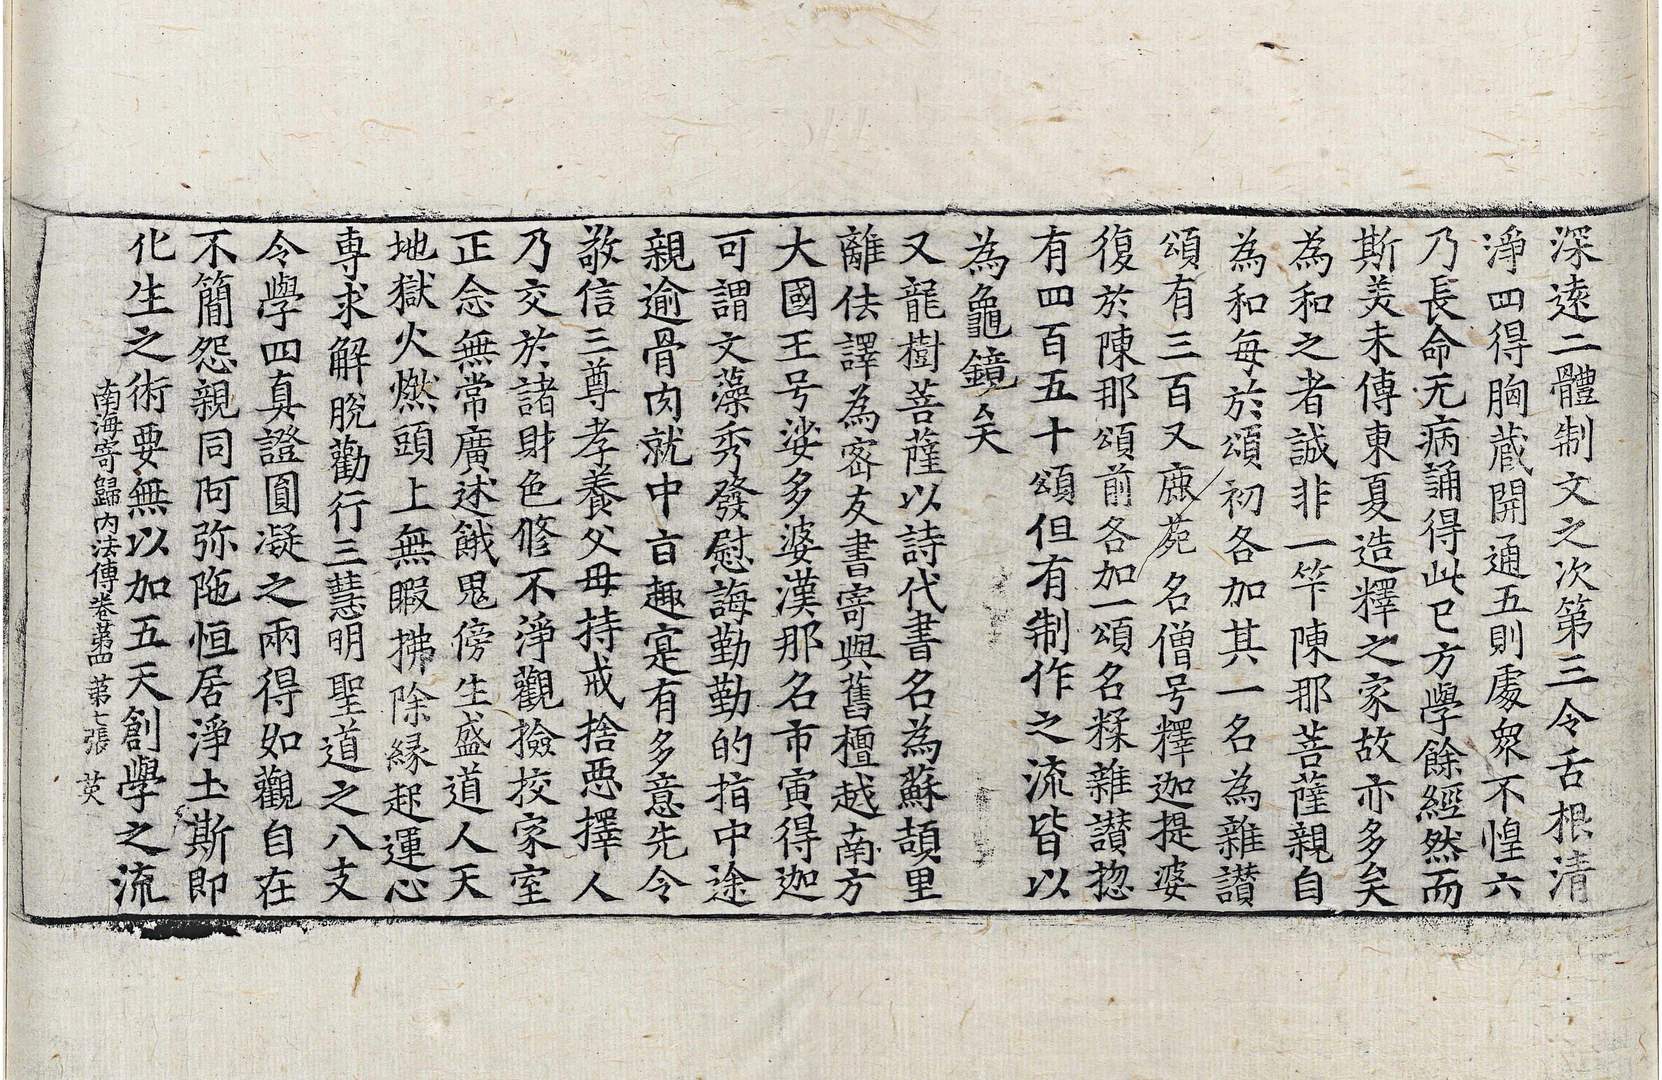 深遠二體制文之次第三令舌根清
淨四得胸藏開通五則處衆不惶六
乃長命无病誦得此已方學餘經然而
斯美未傳東夏造釋之家故亦多矣
為和之者誠非一竿陳那菩薩親自
為和每於頌初各加其一名為雜讃
頌有三百又鹿苑名僧号釋迦提婆
復於陳那頌前各加一頌名糅雜讃揔
有四百五十頌但有制作之流皆以
為龜鏡矣
又龍樹菩薩以詩代書名為蘇頡里
離佉譯為密友書寄與舊檀越南方
大國王号娑多婆漢那名市寅得迦
可謂文藻秀發慰誨勤勤的指中途
親逾骨肉就中百趣寔有多意先令
敬信三尊孝養父母持戒捨惡擇人
乃交於諸財色修不淨觀撿挍家室
正念無常廣述餓鬼傍生盛道人天
地獄火燃頭上無暇拂除緣起運心
專求解脫勸行三慧明聖道之八支
令學四真證圓凝之兩得如觀自在
不簡怨親同阿弥陁恒居淨土斯即
化生之術要無以加五天創學之流
南海寄歸内法傳卷第四 第七張 英